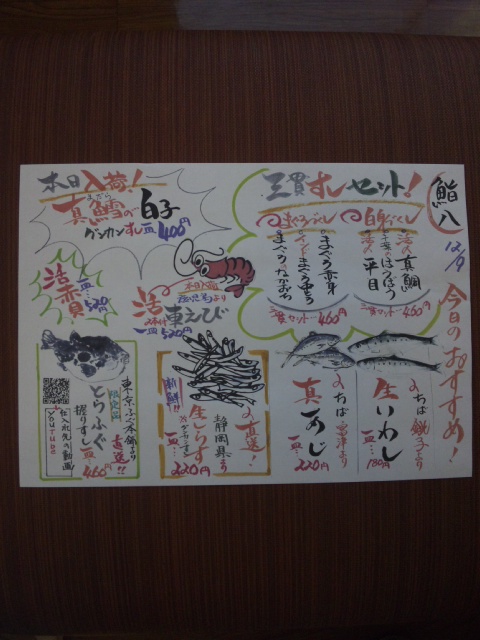 鮨八
12/9
今日のおすすめ!
三貫すしセット!
白身づくし
活〆真鯛
ほうぼう
平目
三貫セット…460円
まぐろづくし
まぐろ赤身
まぐろ中とろ
まぐろのなかおち
三貫セット…460円
本日入荷!
まだら
真鱈の白子
グンカンすし一皿400円
活赤貝!
一皿…520円
本日入荷
より
活車えび
一皿…520円
ちば銚子より
生いわし
一皿…180円
ちば富津より
真あじ
一皿…220円
直送!
静岡県より
生しらす
新鮮!!
220円
東京ふぐ本舗より
直送!!
限定品
とらふぐ
握りすし一皿…460円
仕入れ先の動画
YOUTUBE